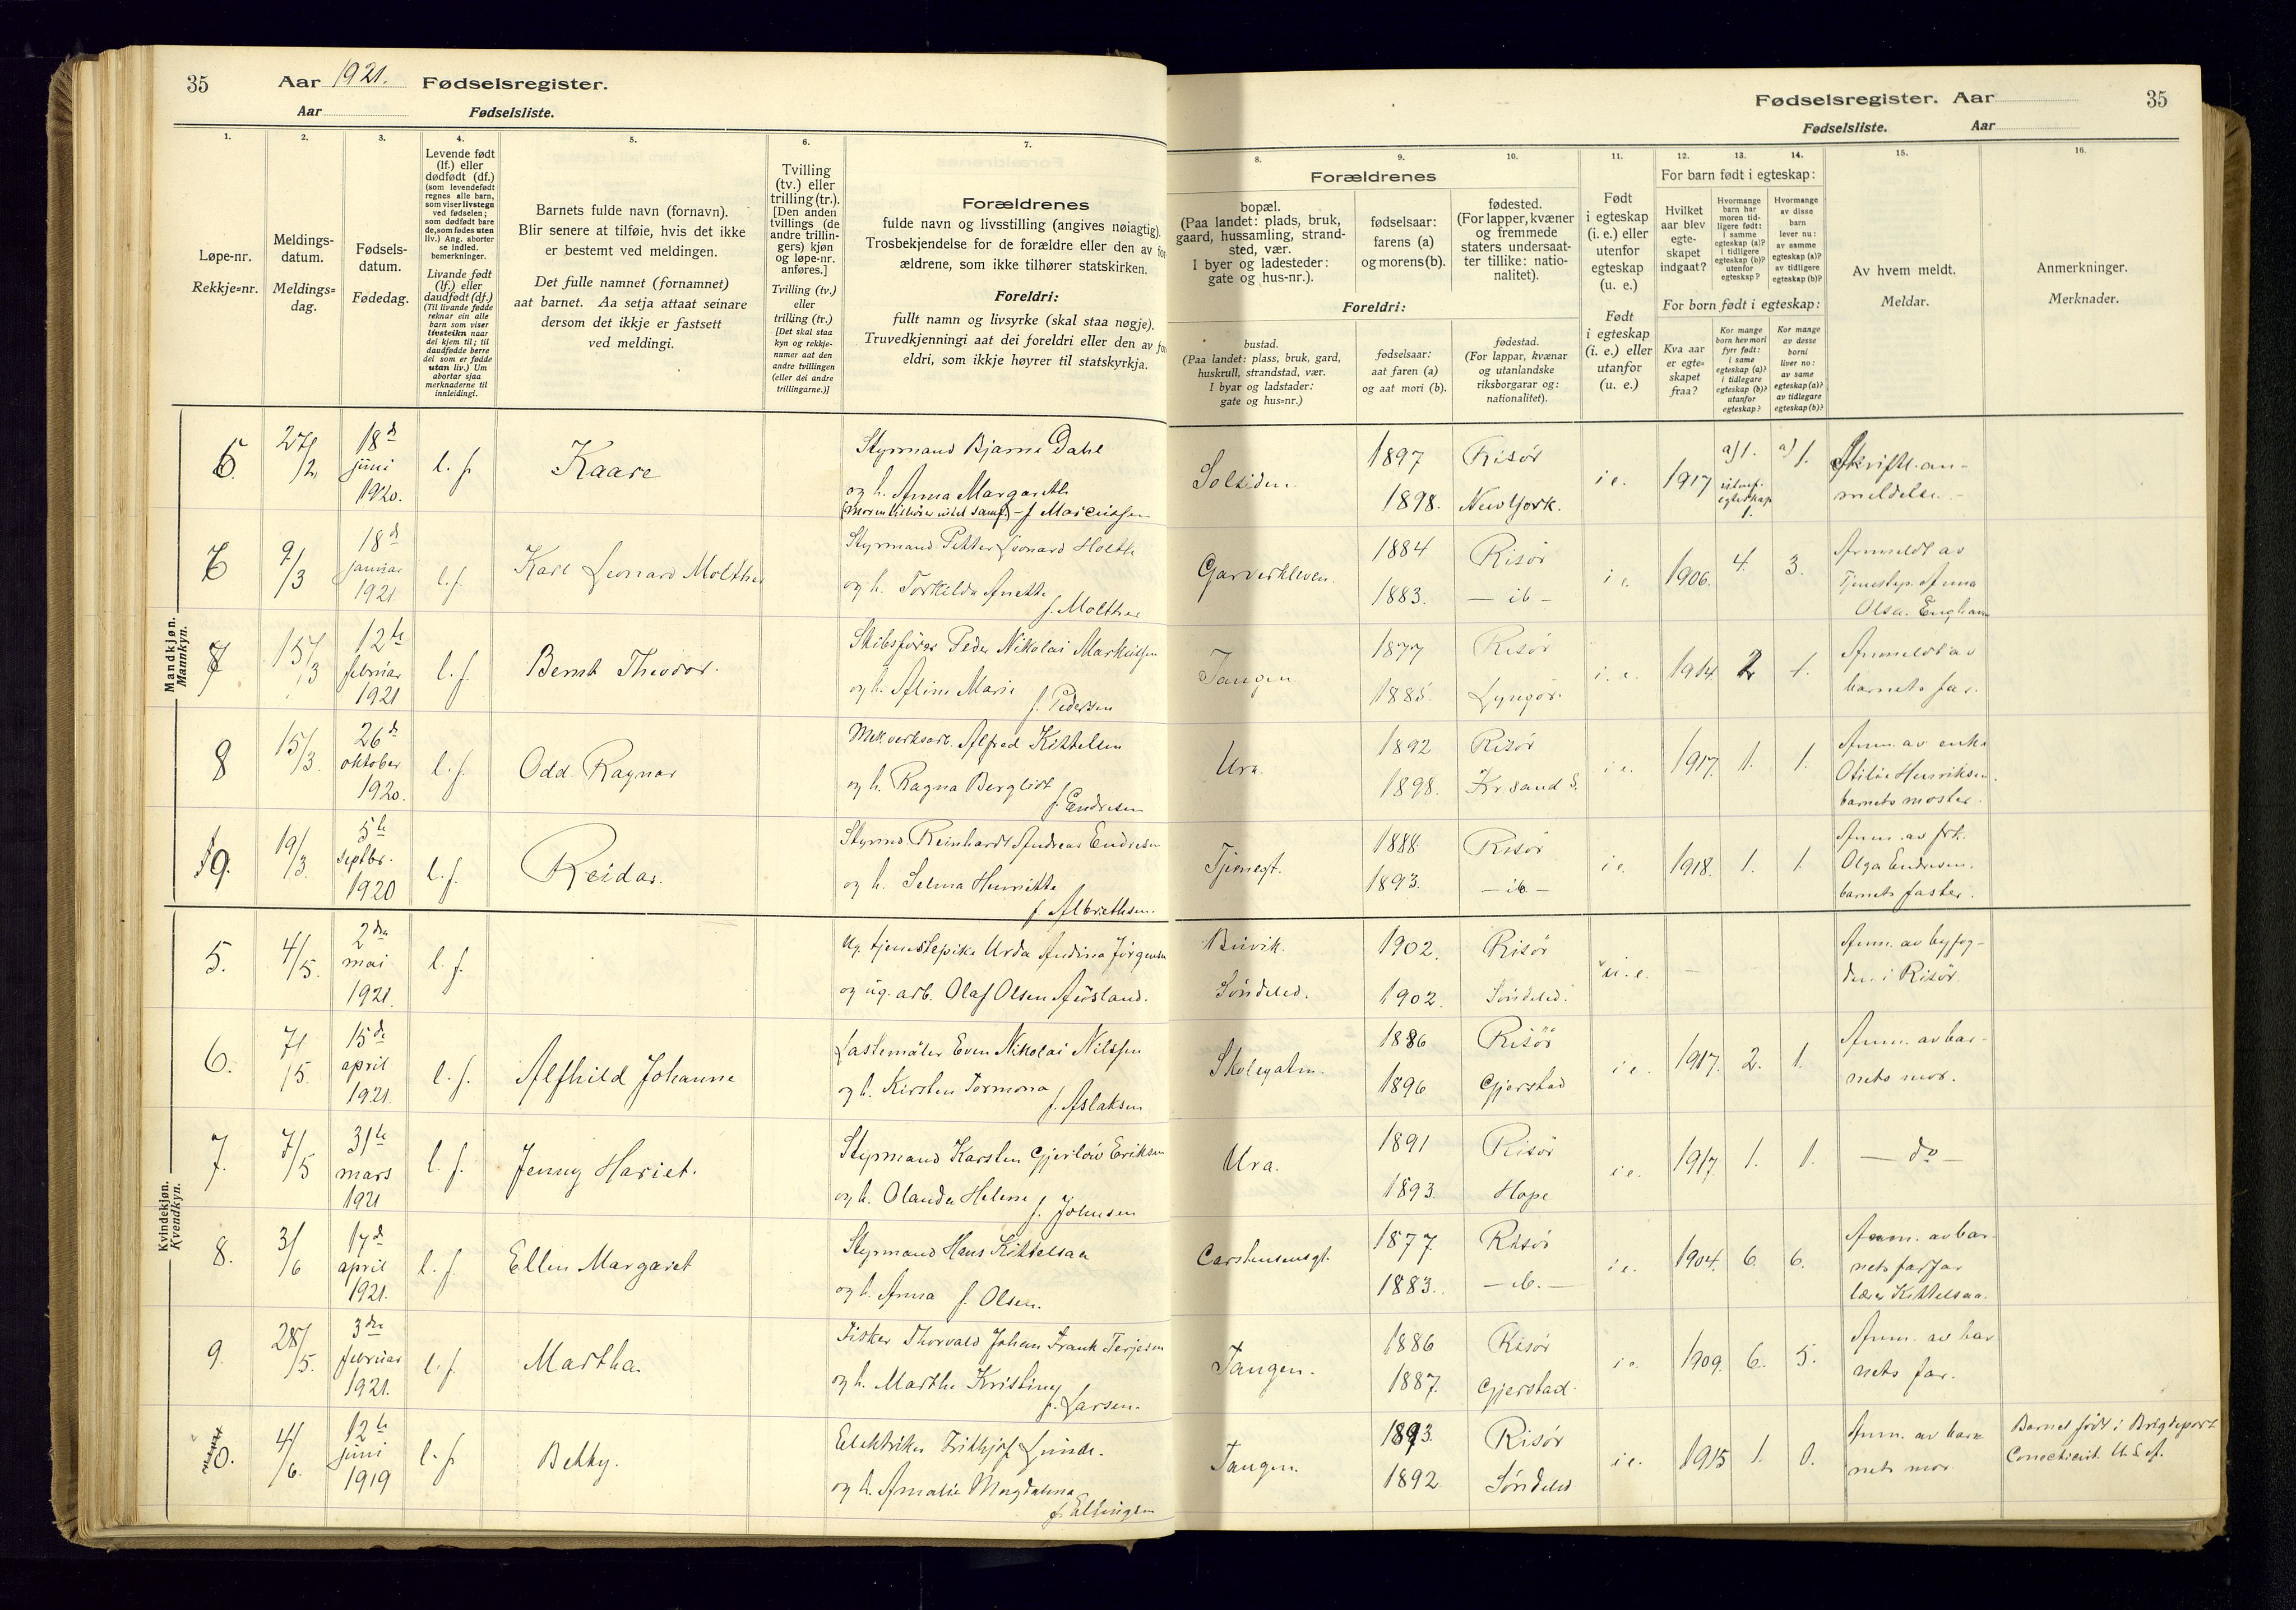 35
Aar 1921. Fødselsregister.
Aar Fødselsliste.
1.
Løpe-nr.
Rekkje=nr.
2.
Meldings-
datum.
Meldings=
dag.
3.
Fødsels-
datum.
Fødedag.
4.
Levende født
(lf.) eller
dødfødt (df.)
(som levendefødt
regnes alle barn,
som viser livstegn
ved fødselen;
som dødfødt bare
de, som fødes uten
liv.) Ang. aborter
se indled.
bemerkninger.
Livande født
(lf.) eller
daudfødt (df.)
(Til livande fødde
reknar ein alle
barn som viser
livsteikn naar
dei kjem til; til
daudfødde berre
dei som er fødde
utan liv.) Um
abortar sjaa
merknaderne til
innleidingi.
5.
Barnets fulde navn (fornavn).
Blir senere at tilføie, hvis det ikke
er bestemt ved meldingen.
Det fulle namnet (fornamnet)
aat barnet. Aa setja attaat seinare
dersom det ikkje er fastsett
ved meldingi.
6.
Tvilling
(tv.) eller
trilling (tr.).
[Den anden
tvillings (de
andre trillin-
gers) kjøn
og løpe-nr.
anføres.]
Tvilling (tv.)
eller
trilling (tr.)
[Det skal staa
kyn og rekkje-
numer aat den
andre tvillingen
(eller dei andre
trillingarne.)]
7.
Forældrenes
fulde navn og livsstilling (angives nøiagtig).
Trosbekjendelse for de forældre eller den av for
ældrene, som ikke tilhører statskirken.
Foreldri:
fullt namn og livsyrke (skal staa nøgje).
Truvedkjenningi aat dei foreldri eller den av for
eldri, som ikkje høyrer til statskyrkja.
Mandkjøn.
Mannkyn.
6.
27/2
18d
juni
1920.
l. f.
Kaare
Styrmand Bjarne Dahl
og h. Anna Margareth
f. Marcussen
6
9/3
18d
januar
1921
l. f.
Karl Leonard Molther
Styrmand Petter Leonard Holth
og h. Torkilda Anette
f. Molther
7
15/3
12te
februar
1921
l. f.
Bernt Theodor.
Skibsfører Peder Nikolai Markussen
og h. Aline Marie
f. Pedersen
8
15/3.
26d
oktober
1920.
l. f.
Odd Ragnar
Mek. verksarb. Alfred Kittelsen
og h. Ragna Bergliot
f. Endresen
9.
19/3.
5te
septbr.
1920
l. f.
Reidar.
Styrmd. Reinhardt Andreas Endresen
og h. Selma Henriette
f. Albrethsen.
Kvindekjøn.
Kvendkyn.
5.
4/5.
2den
mai
1921.
l. f.
Ug. tjenestepike Urda Andina Jörgensen
og ug. arb. Olaf Olsen Aüsland.
6.
7/5.
15de
april
1921.
l. f.
Alfhild Johanne
Lastemåler Even Nikolai Nilssen
og h. Kirsten Tormona
f. Aslaksen
7.
7/5
31te
mars
1921
l. f.
Jenny Hariet.
Styrmand Karsten Gjerløw Eriksen
og h. Olanda Helene
f. Johnsen
8.
3/6
17d
april
1921.
l. f.
Ellen Margaret
Styrmand Hans Kittelsaa
og h. Anna f. Olsen.
9.
28/5.
3die
februar
1921.
l. f.
Martha.
Fisker Thorvald Johan Frank Terjesen
og h. Marthe Kristine
f. Larsen.
4/6.
12te
juni
1919
l. f.
Betty.
Elektriker Frithjof Lunde.
og h. Amalie Magdalena
f. Ellingsen
Fødselsregister. Aar
35
Fødselsliste. Aar
8.
Forældrenes
bopæl.
(Paa landet: plads, bruk,
gaard, hussamling, strand-
sted, vær.
I byer og ladesteder:
gate og hus-nr.).
Foreldri:
bustad.
(Paa landet: plass, bruk, gard,
huskrull, strandstad, vær.
I byar og ladstader:
gate og hus=nr.)
9.
fødselsaar:
farens (a)
og morens (b).
fødselsaar:
aat faren (a)
og aat mori (b).
10.
fødested.
(For lapper, kvæner
og fremmede
staters undersaat-
ter tillike: natio-
nalitet).
fødestad.
(For lappar, kvænar
og utanlandske
riksborgarar og:
nationalitet).
11.
Født
i egteskap
(i. e.) eller
utenfor
egteskap
(u. e.)
Født
i egteskap
(i. e.) eller
utanfor
(u. e.)
12.
For barn født i egteskap:
Hvilket
aar blev
egte-
skapet
indgaat?
For born født i egteskap:
Kva aar
er egte-
skapet
fraa?
13.
Hvormange
barn har
moren tid-
ligere født:
i samme
egteskap (a)?
i tidligere
egteskap (b)?
utenfor
egteskap?
Kor mange
born hev mori
fyrr født:
i same
egteskap (a)?
i tidlegare
egteskap (b)?
utanfor
egteskap?
14.
Hvormange
av disse
barn
lever nu:
av samme
egteskap (a)?
av tidligere
egteskap (b)?
Kor mange
av desse
borni
liver no:
av same
egteskap (a)?
av tidlegare
egteskap (b)?
15.
Av hvem meldt.
Meldar.
16.
Anmerkninger.
Merknader.
Solsiden.
1897
1898.
Risör
New York.
i e.
1917
a) 1.
utenf.
egteskap
1.
a) 1.
Skriftl. an-
meldelse. -
Garverkleven.
1884
1883.
Risör
- ib -
i e.
1906.
4.
3.
Anmeldt av
Tjenestep. Anna
Olsen Enghavn
Tangen
1877
1885.
Risör
Lyngör.
i. e.
1914
2
1.
Anmeldt av
barnets far.
Ura.
1892
1898.
Risör
Kr.sand S.
i e.
1917.
1.
1.
Anm. av enke
Otilie Henriksen.
barnets moster.
Tjennegt.
1888
1893.
Risör
- ib -
i e.
1918.
1.
1.
Anm. av frk.
Olga Endresen.
barnets faster.
Buvik.
Söndeled.
1902.
1902.
Risör
Söndeled.
u. e.
-
Anm. av byfog-
den i Risör.
Skolegaten.
1886
1896
Risör
Gjerstad
i e.
1917.
2.
1.
Anm. av bar-
nets mor.
Ura.
1891
1893.
Risör
Hope
i e.
1917.
1.
1.
- do -
Carstensensgt.
1877.
1883.
Risör
- ib. -
i e.
1904.
6.
6.
Anm. av bar-
nets farfar
lærer Kittelsaa.
Tangen.
1886
1887.
Risör
Gjerstad.
i e.
1909.
6.
5.
Anm. av bar
nets far.
Tangen.
1893.
1892
Risör
Söndeled
i e.
1915
1.
0.
Anm. av bar
nets mor
Barnet född i Bridgeport
Conecticut U. S. A.